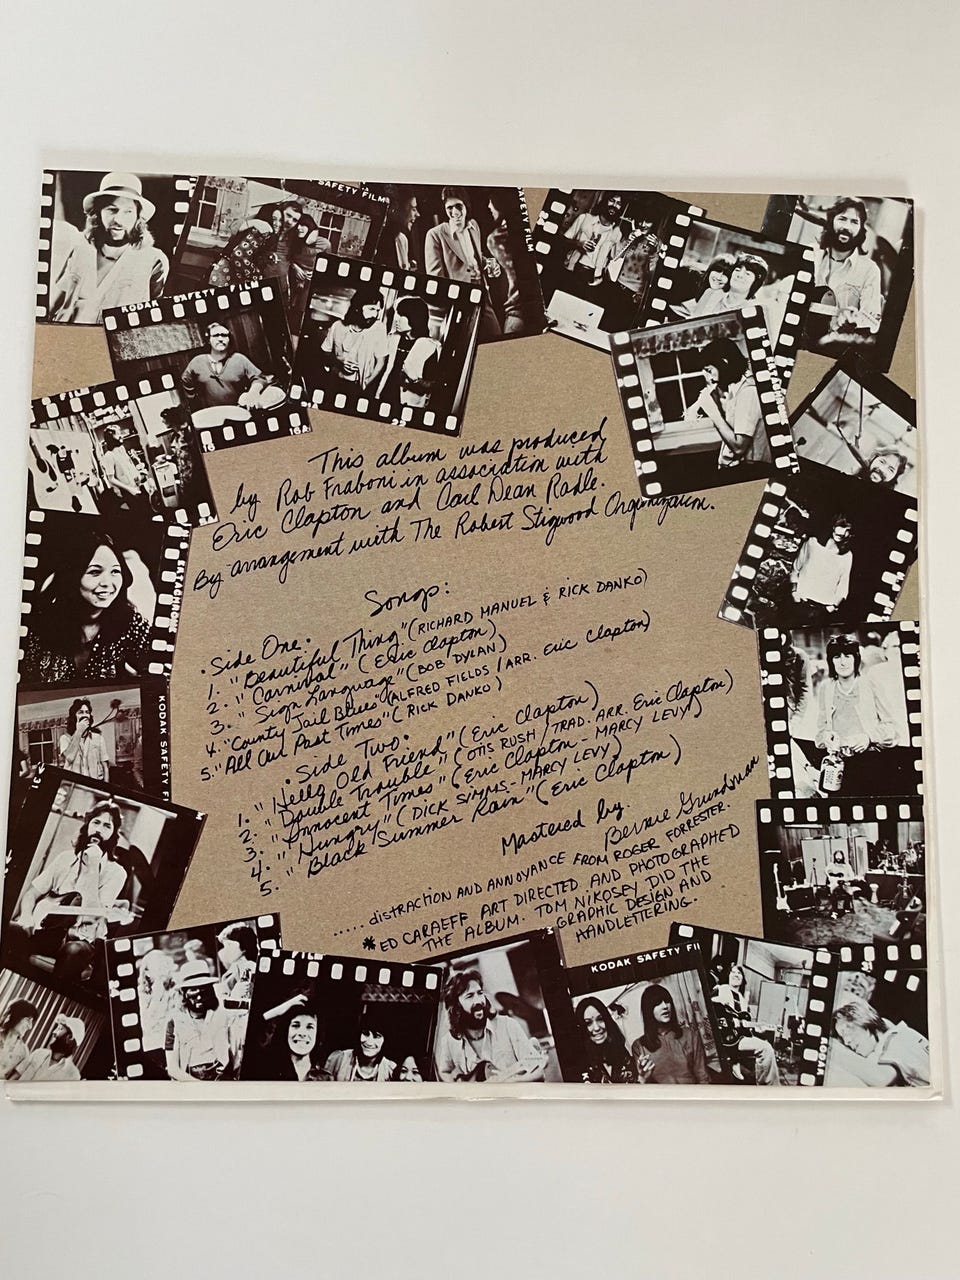 SAFETY FILM
SAFETY FILM
KODAK SAFETY FILM
16
16A
22
This album was produced
by Rob Fraboni in association with
Eric Clapton and Carl Dean Radle.
By arrangement with The Robert Stigwood Organization.
Songs:
• Side One •
1. "Beautiful Thing" (RICHARD MANUEL & RICK DANKO)
2. "Carnival" (Eric Clapton)
3. "Sign Language" (BOB DYLAN)
4. "County Jail Blues" (ALFRED FIELDS / ARR. Eric Clapton)
5. "All Our Past Times" (RICK DANKO)
• Side Two •
1. "Hello Old Friend" (Eric Clapton)
2. "Double Trouble" (OTIS RUSH / TRAD. ARR. Eric Clapton)
3. "Innocent Times" (Eric Clapton - MARCY LEVY)
4. "Hungry" (DICK SIMMS - MARCY LEVY)
5. "Black Summer Rain" (Eric Clapton)
Mastered by:
Bernie Grundman
..... distraction AND ANNOYANCE FROM ROGER FORRESTER.
*ED CARAEFF ART DIRECTED AND PHOTOGRAPHED
THE ALBUM. TOM NIKOSEY DID THE
GRAPHIC DESIGN AND
HANDLETTERING.
KODAK SAFETY
31
KODAK SAFETY FIL
KODAK